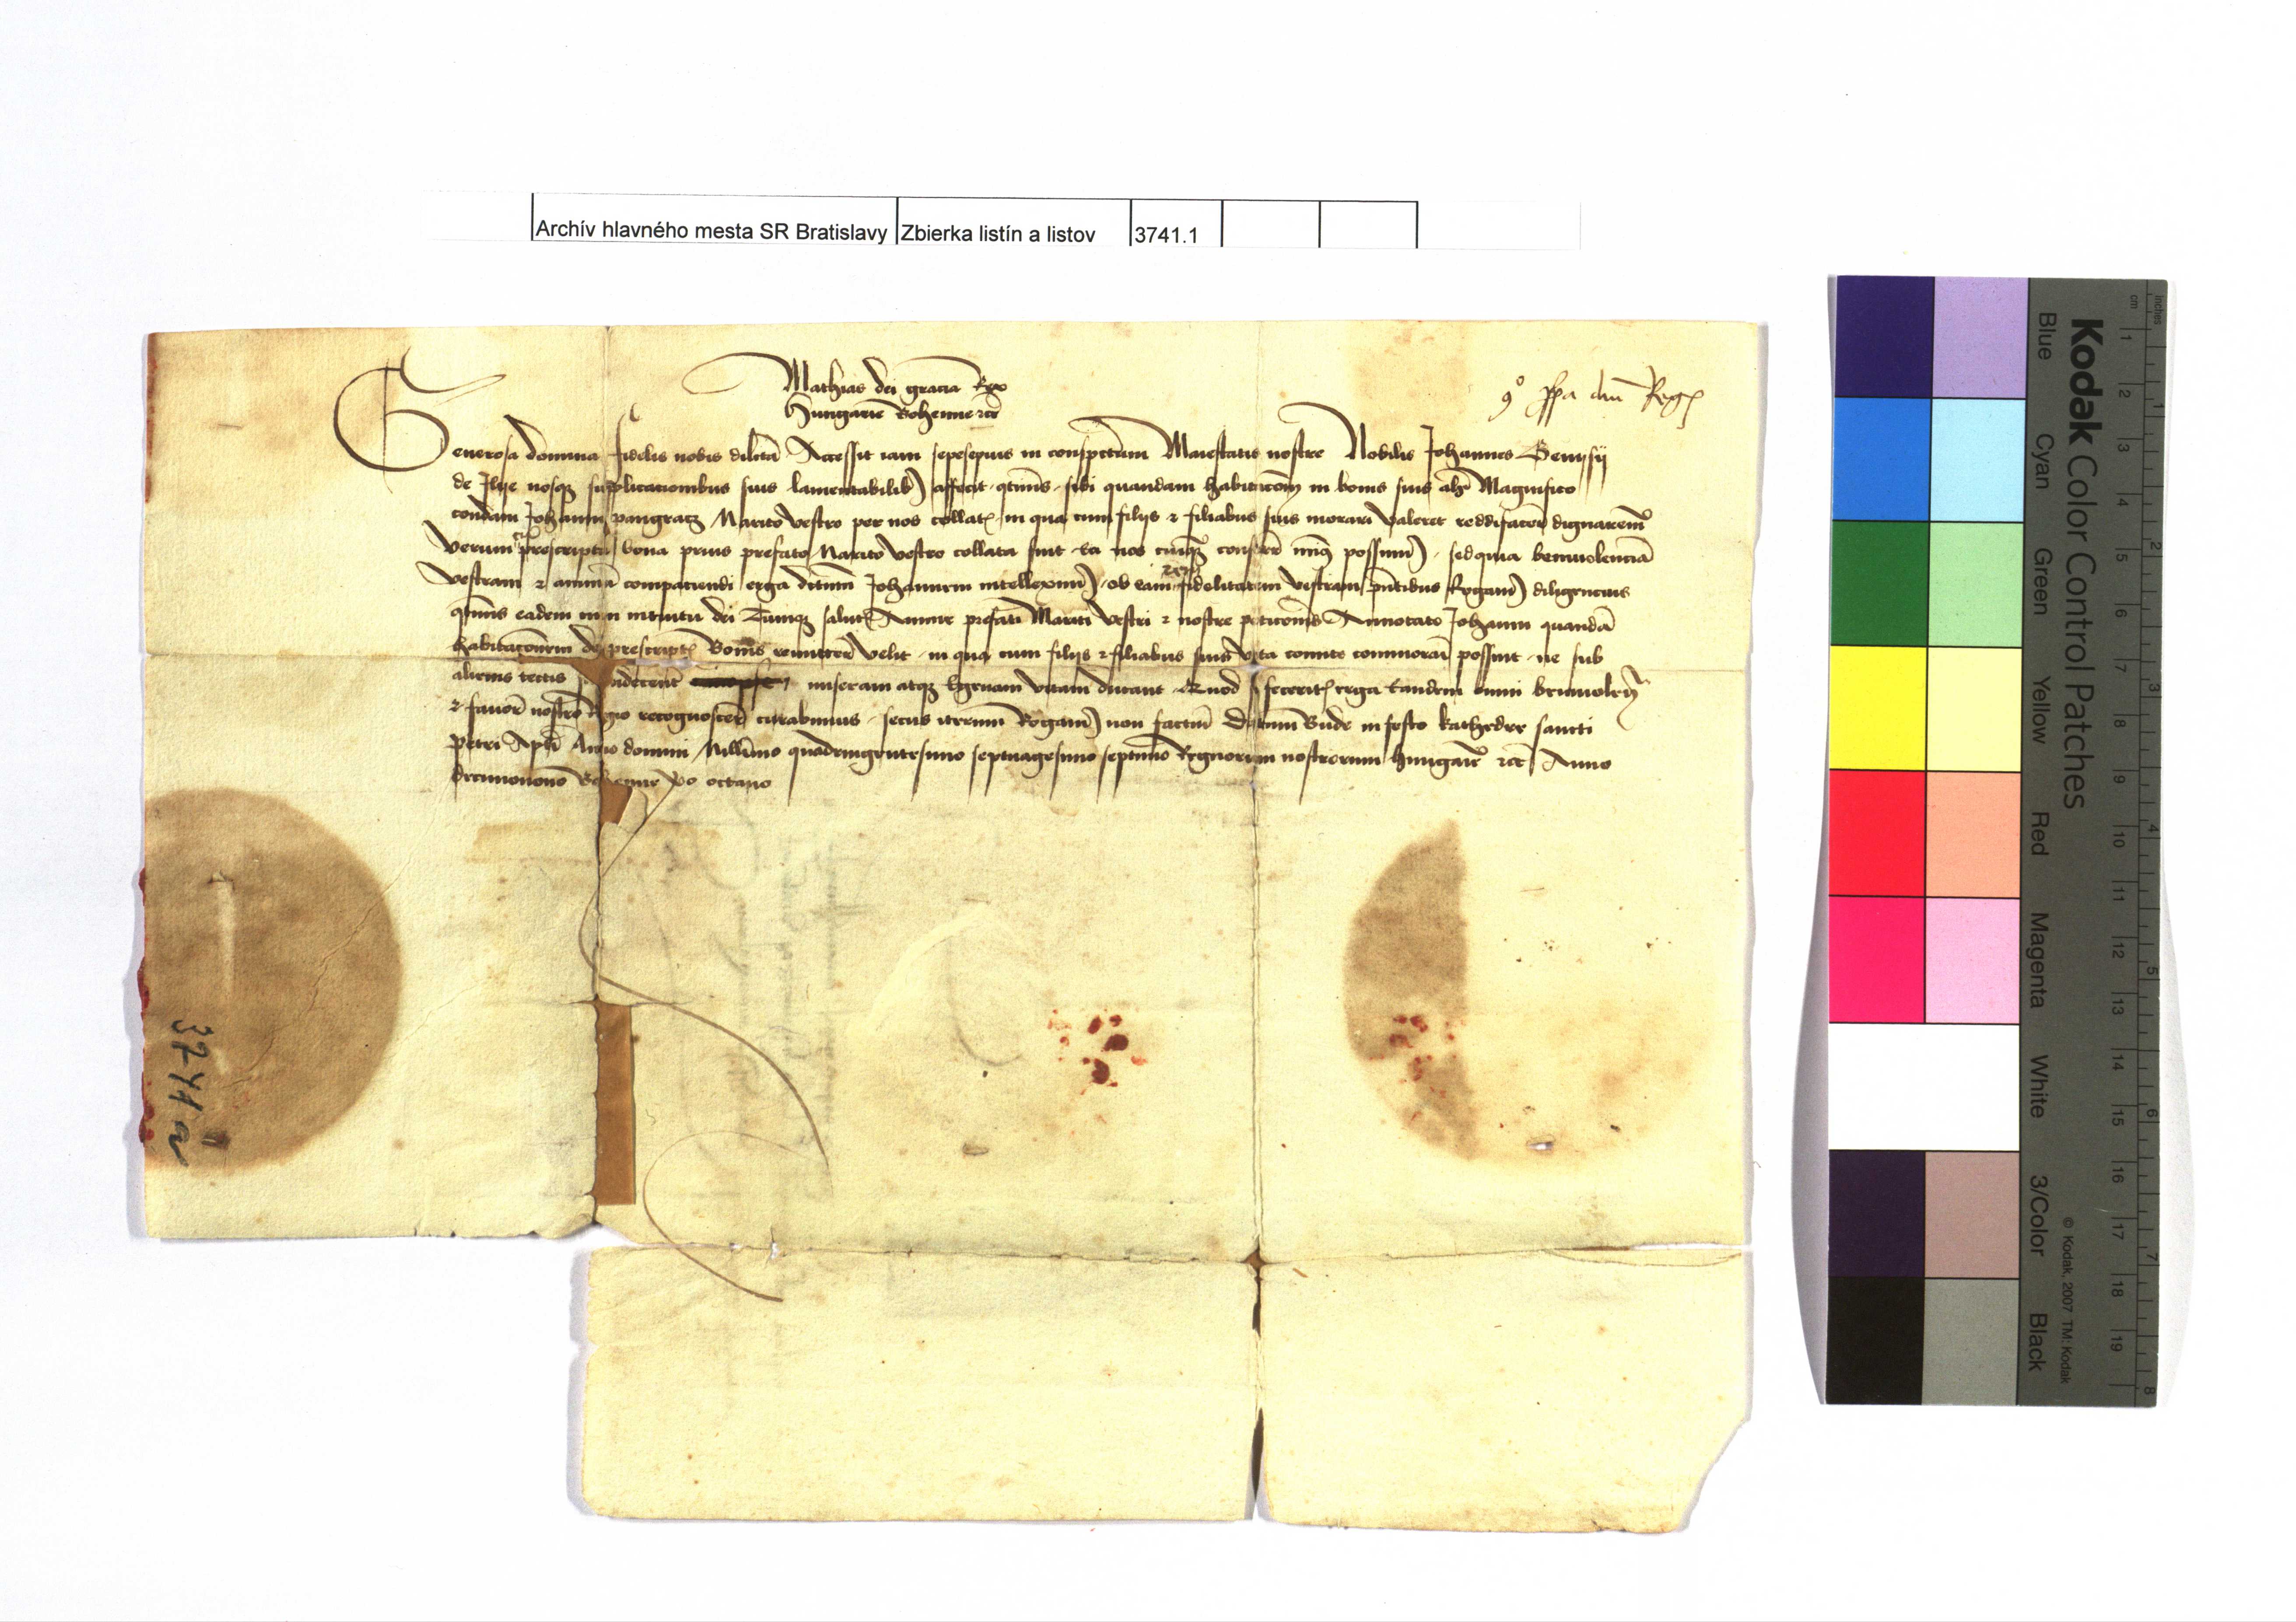 Archív hlavného mesta SR Bratislavy Zbierka listín a listov 3741.1
Mathias dei gracia Rex
Hungarie Bohemie etc
Regis
Generosa domina fidelis nobis dilecta Accessit iam sepesepius in conspectum Maiestatis nostre Nobilis Johannes
de nosque supplicacionibus suis lamentabilibus affecit quatenus sibi quandam habitacionem in bonis suis Magnifico
condam Johanni pangracz Marito vestro per nos collatis in qua cum filijs et filiabus suis morari valeret dignaremur
Verum prescripta bona prius prefato Marito vestro collata sint nos possumus sed quia benivolenciam
vestram et animum compatiendi erga dictum Johannem intelleximus ob eam fidelitatem vestram presentibus Rogamus diligencius
quatenus eadem intuitu dei Tumque salutis Anime prefati Mariti vestri et nostre peticionis Annotato Johanni quandam
habitacionem de prescriptis Bonis remittere velit in qua cum filijs et filiabus suis vita comite commorari possint ne sub
alienis tectis miseram atque egenam vitam ducant Quod si feceritis erga eandem omni benivolencia
et favore nostro Regio recognoscere curabimus secus iterum Rogamus non facturi Datum Bude in festo kathedre sancti
petri Apostoli Anno domini Millesimo quadringentesimo septuagesimo septimo Regnorum nostrorum hungarie etc Anno
decimonono Bohemie vero octavo
3741 a
Kodak Color Control Patches
Blue Cyan Green Yellow Red Magenta White 3/Color Black
© Kodak, 2007 TM: Kodak
inches 1 2 3 4 5 6 7 8
cm 1 2 3 4 5 6 7 8 9 10 11 12 13 14 15 16 17 18 19